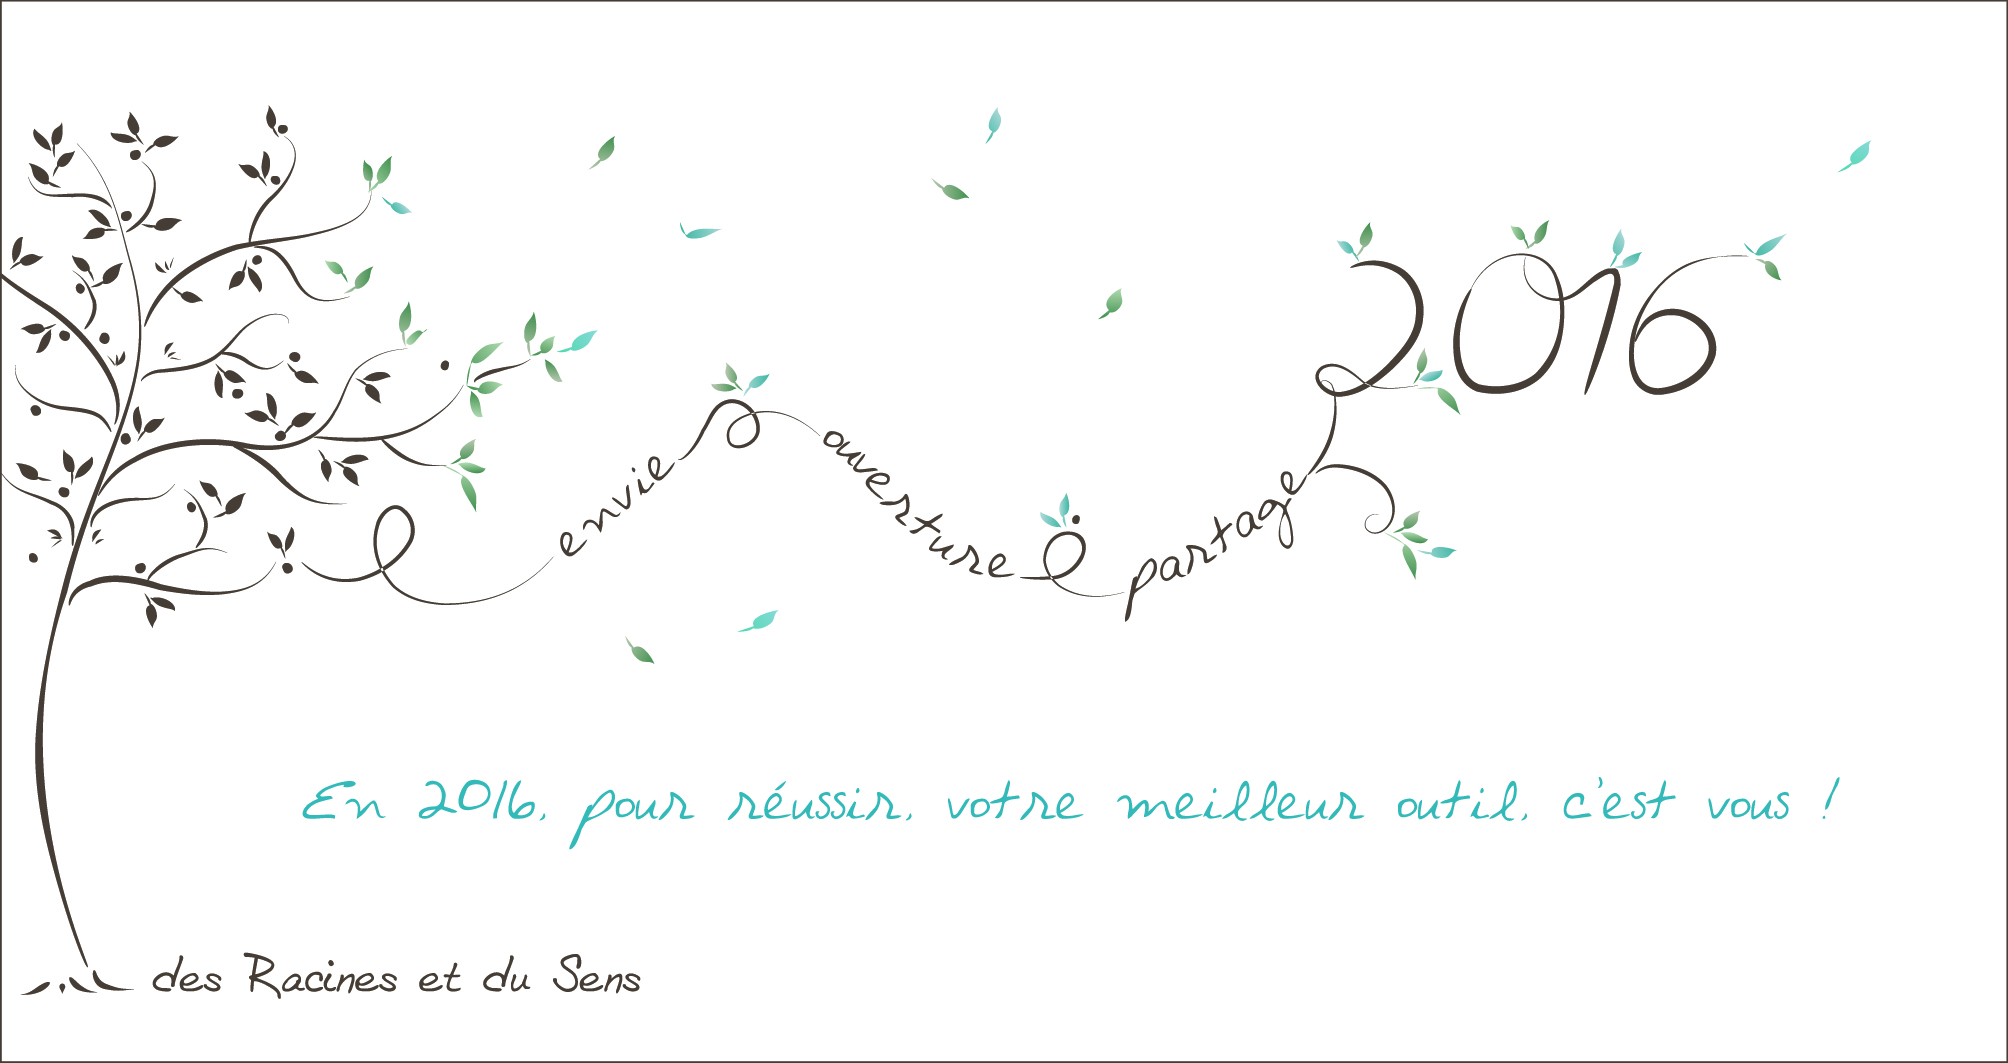 2016
envie ouverture partage
En 2016, pour réussir, votre meilleur outil, c'est vous !
des Racines et du Sens